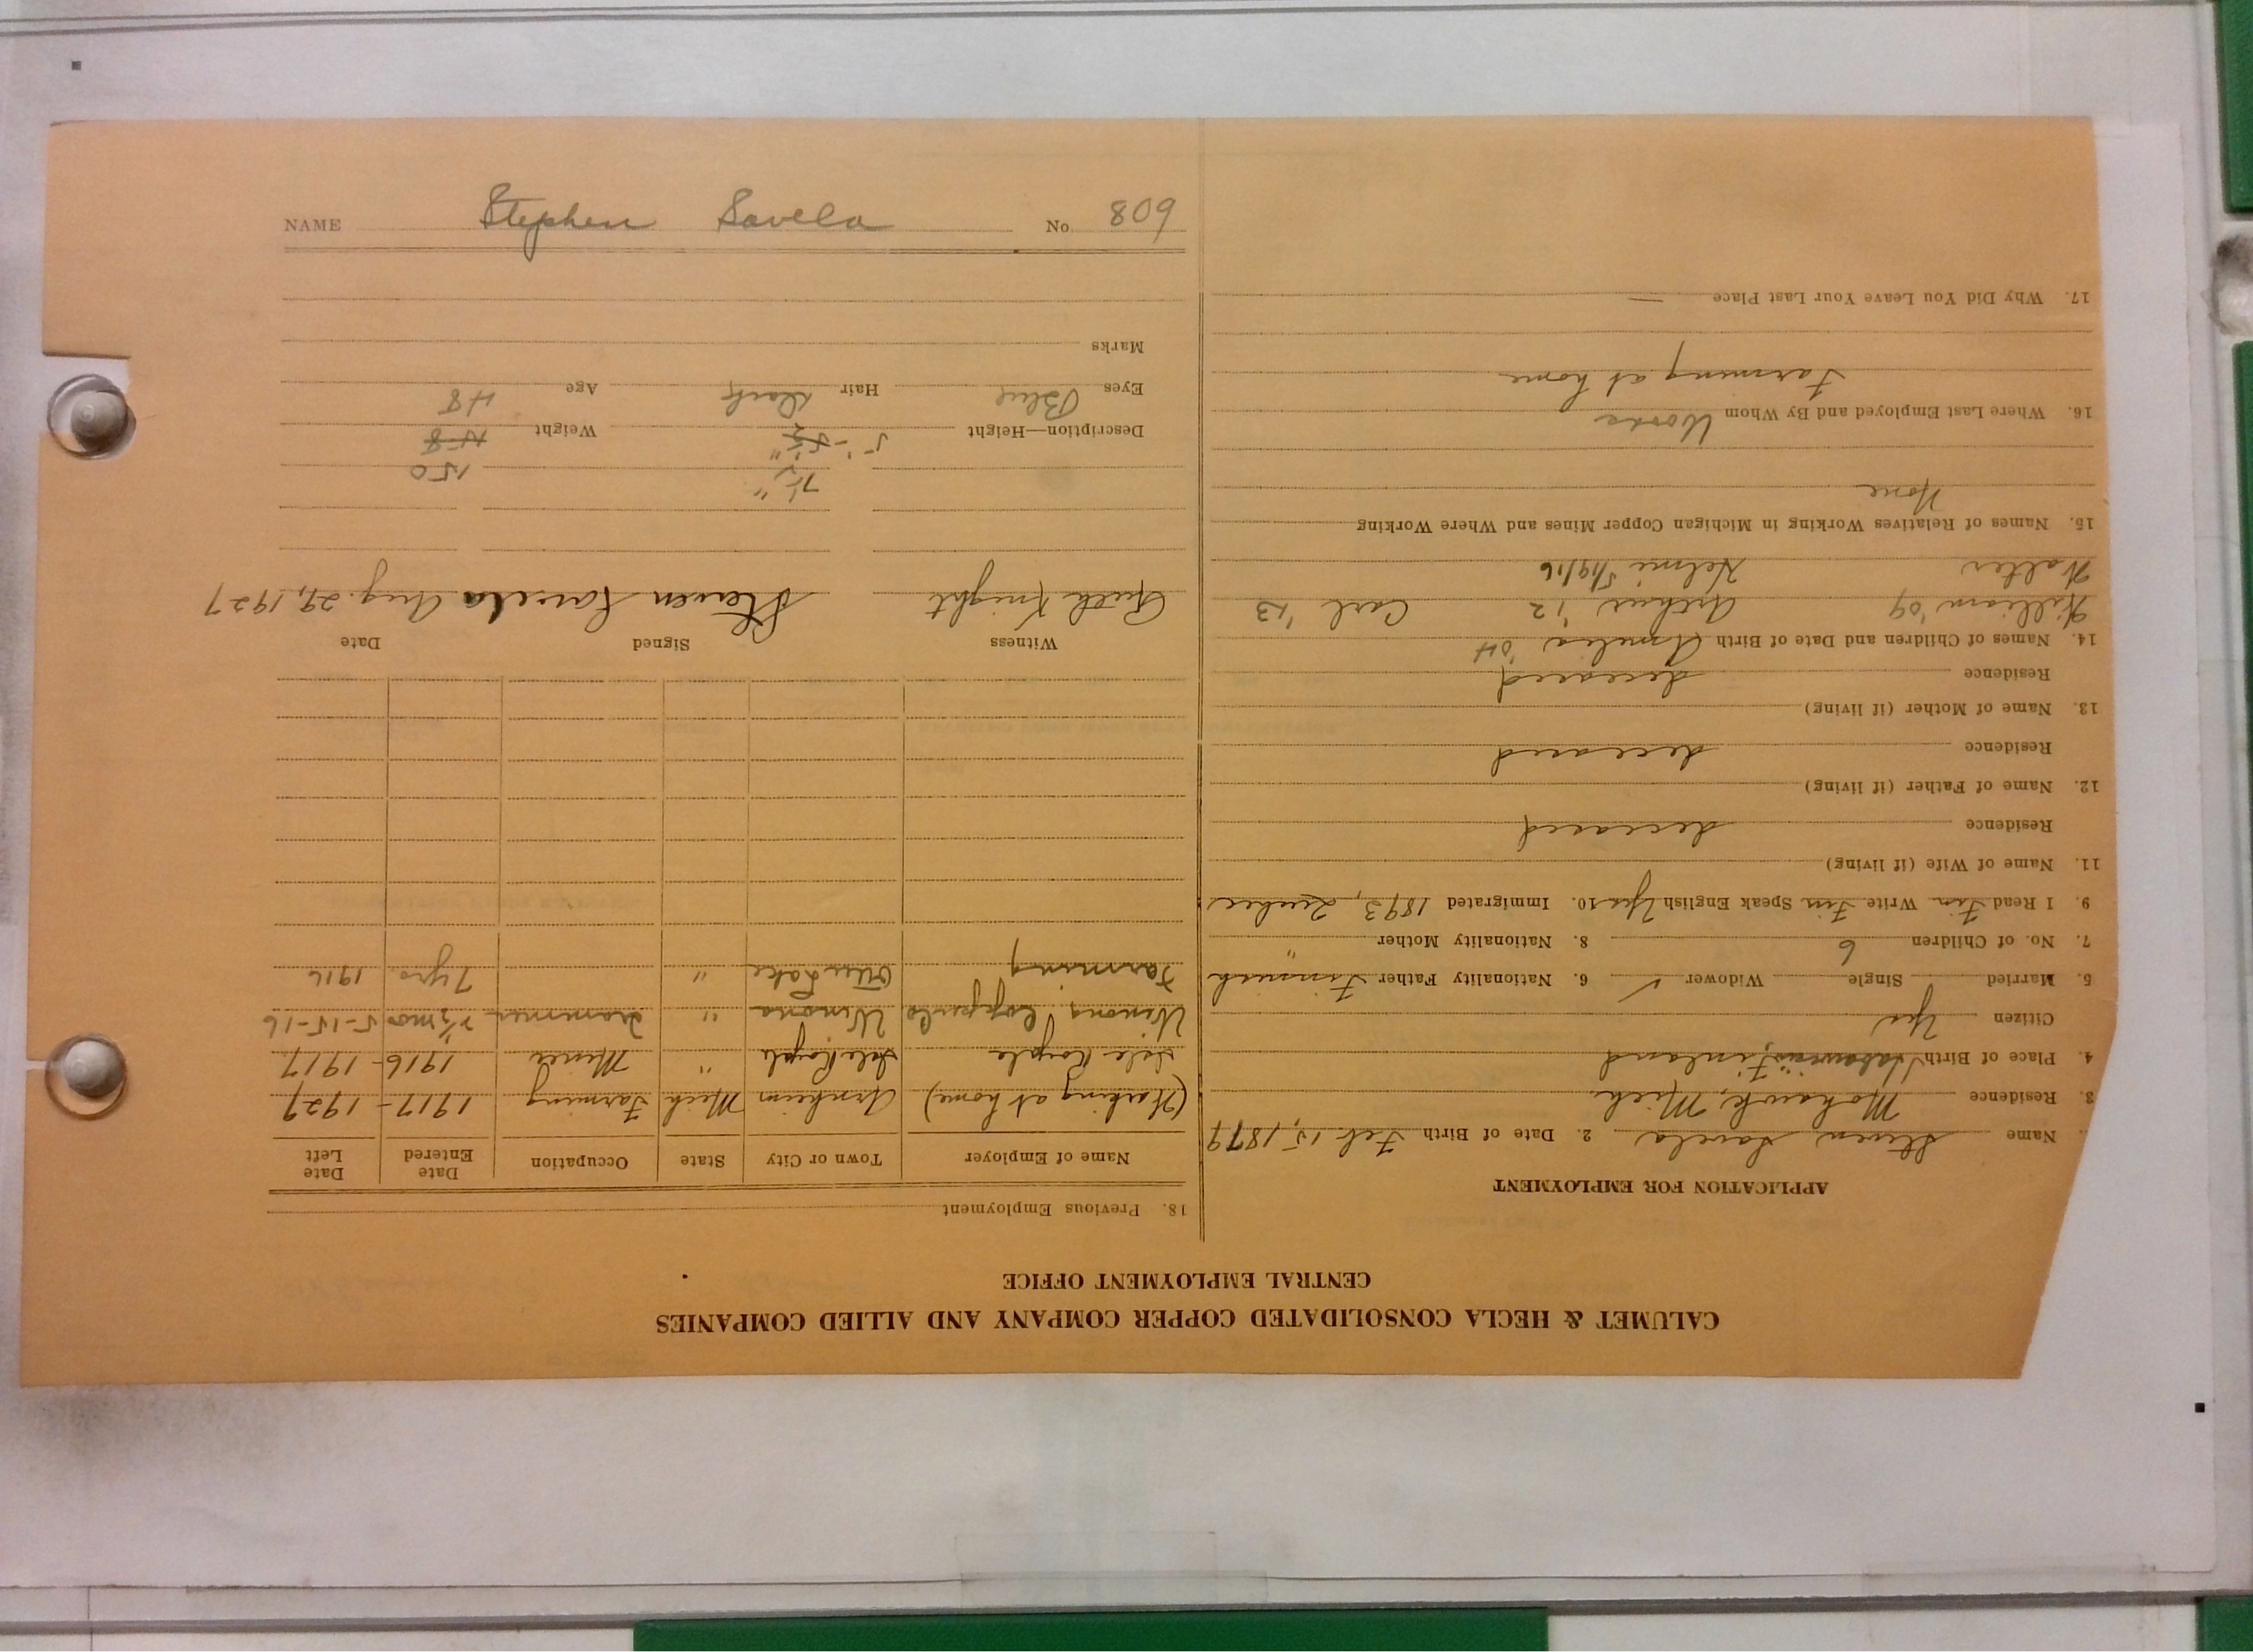 CALUMET & HECLA CONSOLIDATED COPPER COMPANY AND ALLIED COMPANIES
CENTRAL EMPLOYMENT OFFICE
APPLICATION FOR EMPLOYMENT
Name Steven Savela 2. Date of Birth Feb 15, 1879
3. Residence Mohawk, Mich
4. Place of Birth Finland
Citizen Yes
5. Married Single Widower ✓ 6. Nationality Father Finnish
7. No. of Children 6 8. Nationality Mother "
9. I Read Fin Write Fin Speak English Yes 10. Immigrated 1893, Quebec
11. Name of Wife (if living)
Residence deceased
12. Name of Father (if living)
Residence deceased
13. Name of Mother (if living)
Residence deceased
14. Names of Children and Date of Birth Amelia '04
William '09 Arthur '12 Carl '13
Walter Helmi 5/19/16
15. Names of Relatives Working in Michigan Copper Mines and Where Working
None
16. Where Last Employed and By Whom
Farming at home
17. Why Did You Leave Your Last Place —
18. Previous Employment
Name of Employer Town or City State Occupation Date Entered Date Left
(Working at home) Arnheim Mich Farming 1917- 1927
Isle Royale Isle Royale " Miner 1916- 1917
Winona Copper Co Winona " Trammer 2½ mos 5-15-16
Farming Otter Lake " 7 yrs. 1916
Witness Signed Date
Ruth Knight Steven Savela Aug. 29, 1927
7½" 150
Description—Height 5'- 5½" Weight 158
Eyes Blue Hair Dark Age 48
Marks
NAME Stephen Savela No 809